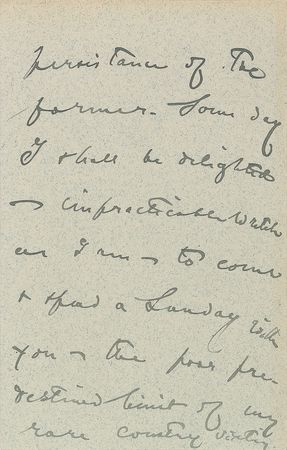 persistance of the
former. Some day
I shall be delighted
– impracticable wretch
as I am – to come
& spend a Sunday with
you – the poor pre-
destined limit of my
rare country visits.